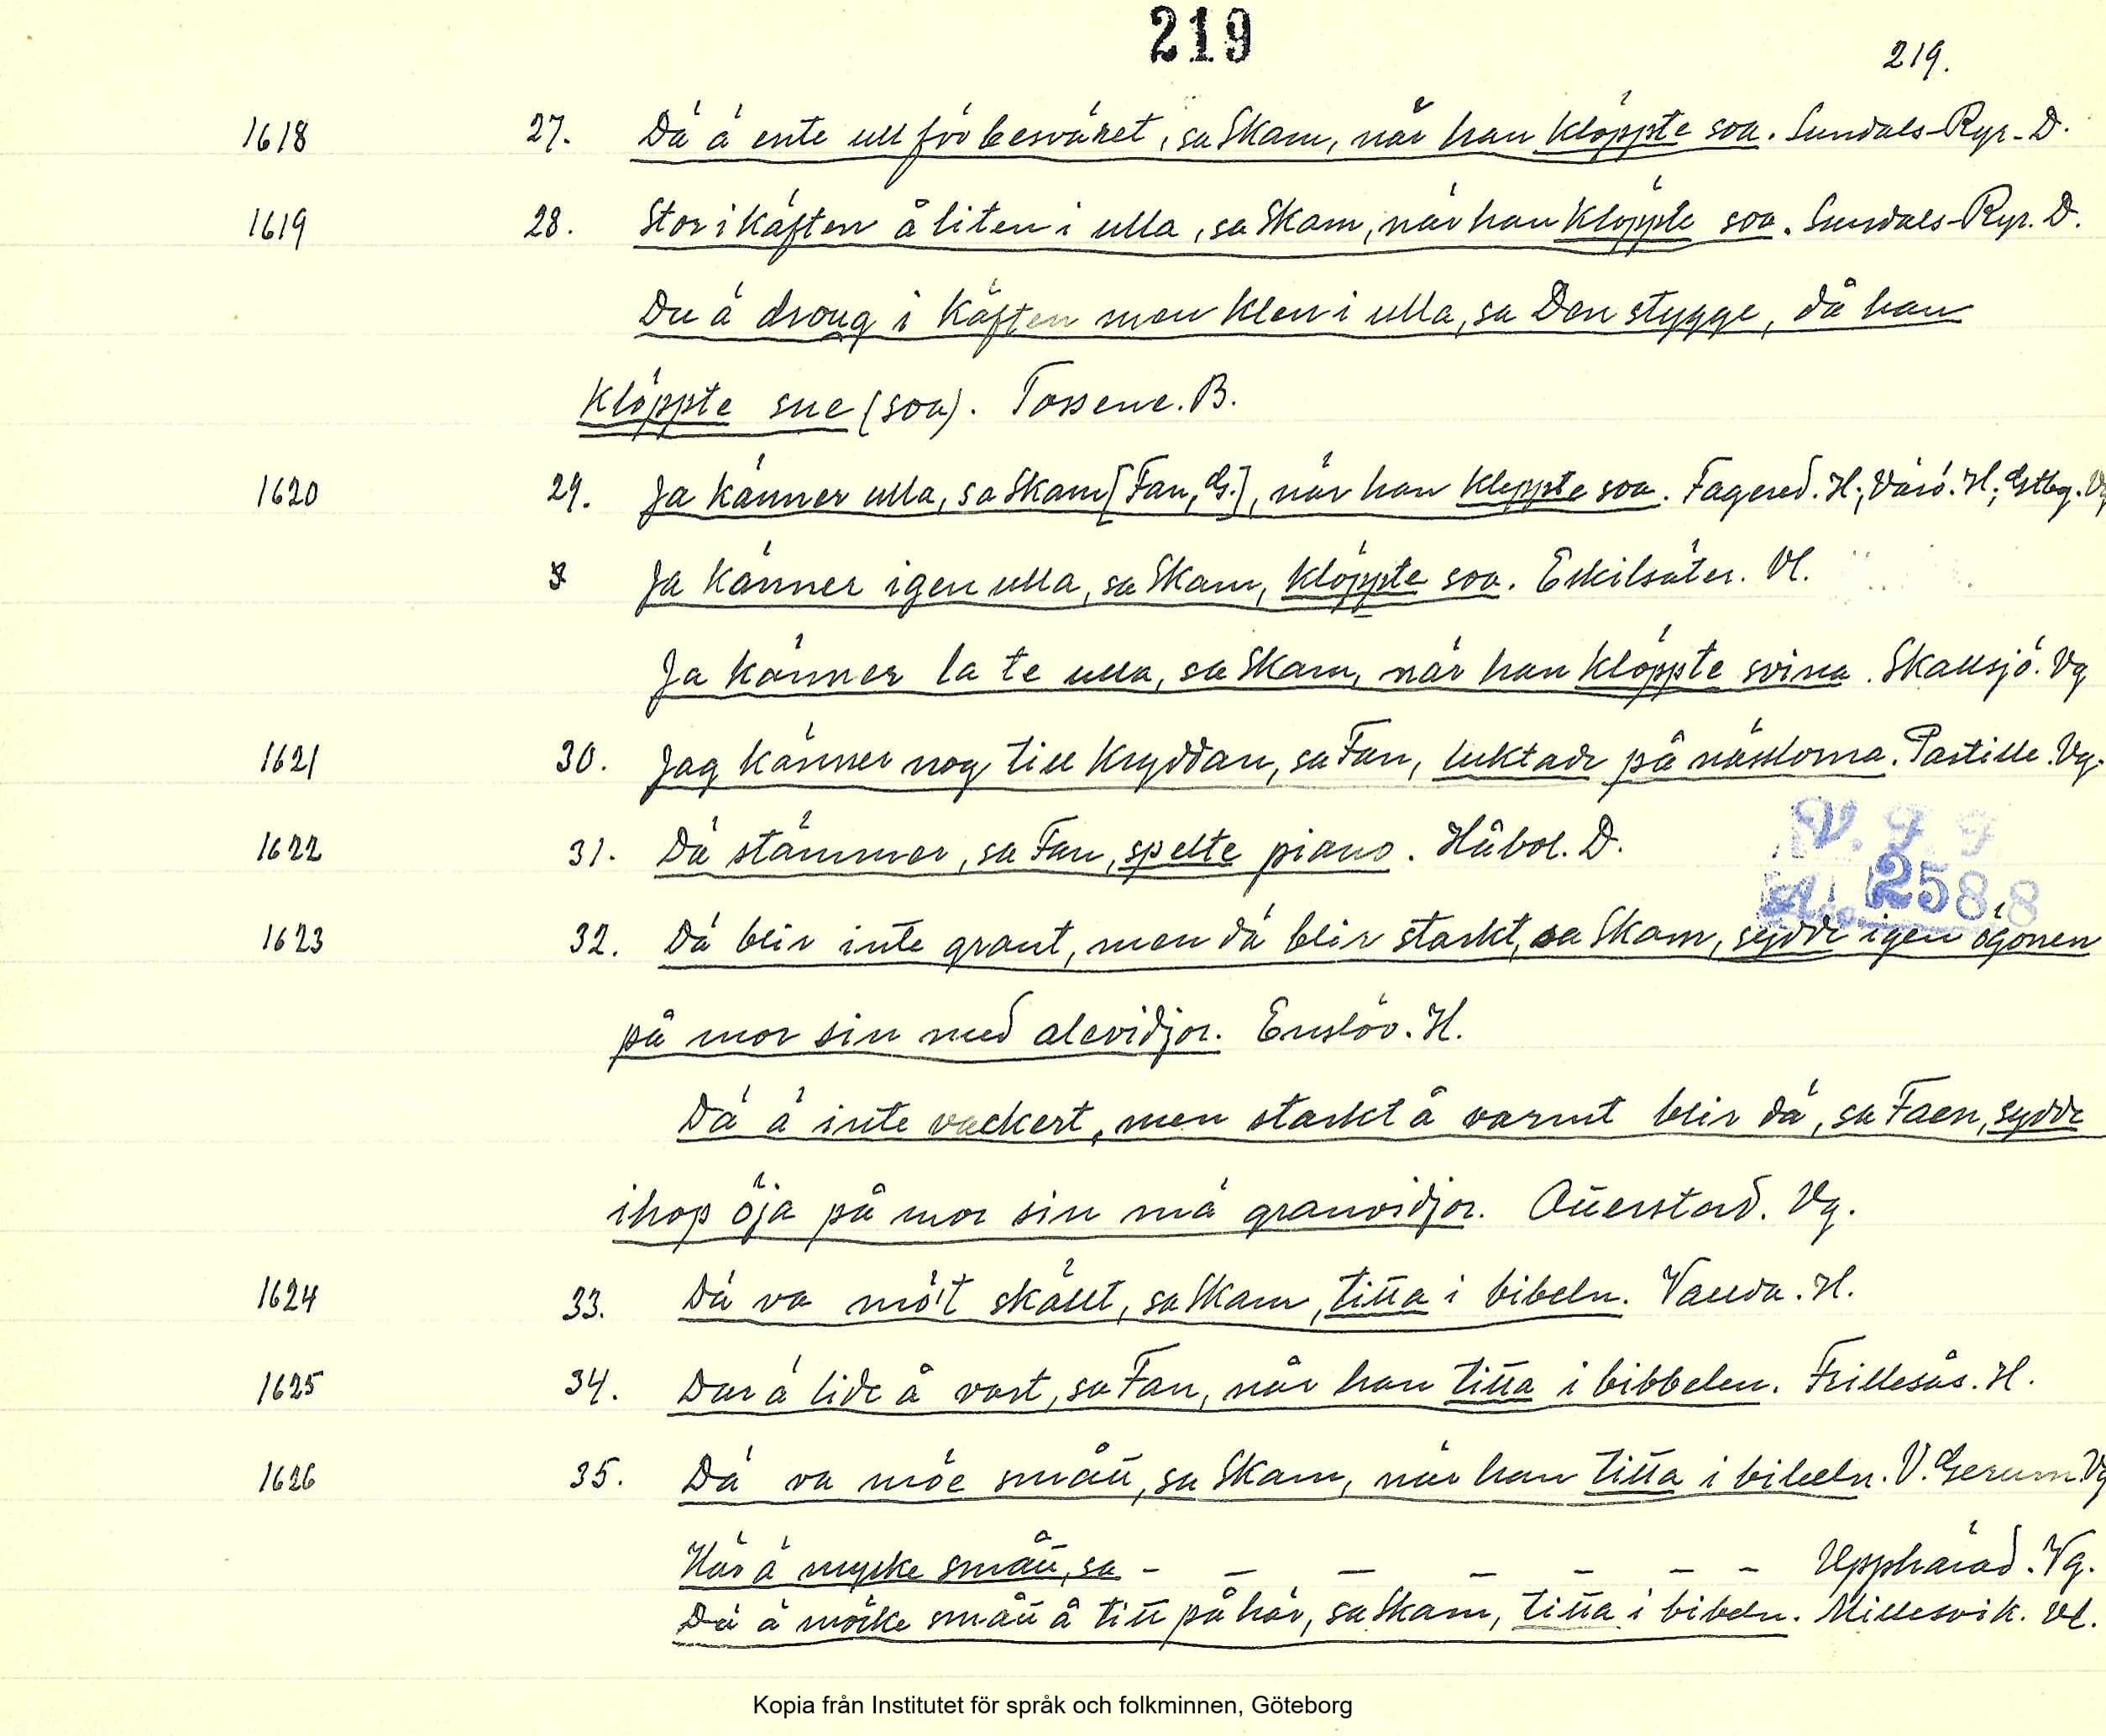 219
219.
1618 27. Dä ä ente ull för besväret, sa Skam, när han klöppte soa. Sundals-Ryr. D.
1619 28. Stor i käften å liten i ulla, sa Skam, när han klöppte soa. Sundals-Ryr. D.
Du ä droug i käften men klen i ulla, sa Den stygge, då han
klöppte sue (soa). Tossene. B.
1620 29. Ja känner ulla, sa Skam [Fan, G.], när han kleppte soa. Fagered. H; Värö. H; Gtbg. Vg
Ja känner igen ulla, sa Skam, klöppte soa. Eskilsäter. Vl.
Ja känner la te ulla, sa Skam, när han klöppte svina. Skallsjö. Vg
1621 30. Jag känner nog till kryddan, sa Fan, luktade på nässlorna. Partille. Vg.
1622 31. Dä stämmer, sa Fan, spelte piano. Håbol. D.
V. G. F.
2588
1623 32. Dä blir inte grant, men dä blir starkt, sa Skam, sydde igen ögonen
på mor sin med alevidjor. Enslöv. H.
Dä ä inte vackert, men starkt å varmt blir dä, sa Faen, sydde
ihop öja på mor sin mä granvidjor. Otterstad. Vg.
1624 33. Dä va möt skällt, sa Skam, titta i bibeln. Vallda. H.
1625 34. Där ä lide å vart, sa Fan, når han titta i bibbelen. Frillesås. H.
1626 35. Dä va möe smått, sa Skam, när han titta i bibeln. V. Gerum Vg
Här ä mycke smått, sa - - - - - - - Upphärad. Vg.
Dä ä möcke smått å titt på här, sa Skam, titta i bibeln. Millesvik. Vl.
Kopia från Institutet för språk och folkminnen, Göteborg